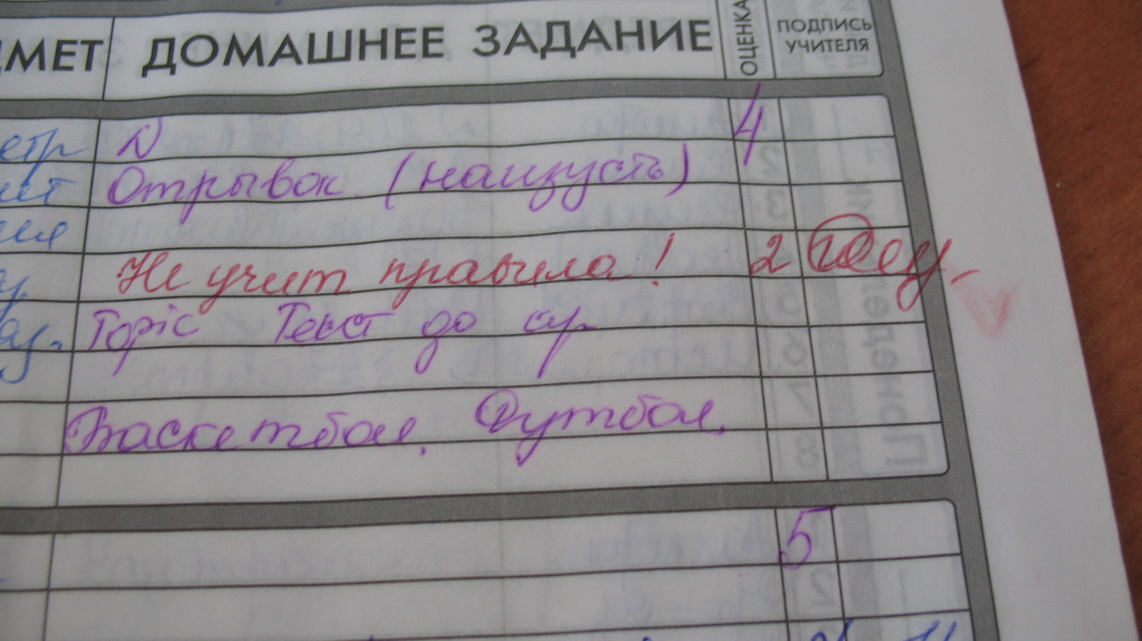 ДОМАШНЕЕ ЗАДАНИЕ ОЦЕНКА ПОДПИСЬ УЧИТЕЛЯ
4
Отрывок (наизусть)
Не учит правила! 2
Topic Текст до ср.
Баскетбол. Футбол.
5